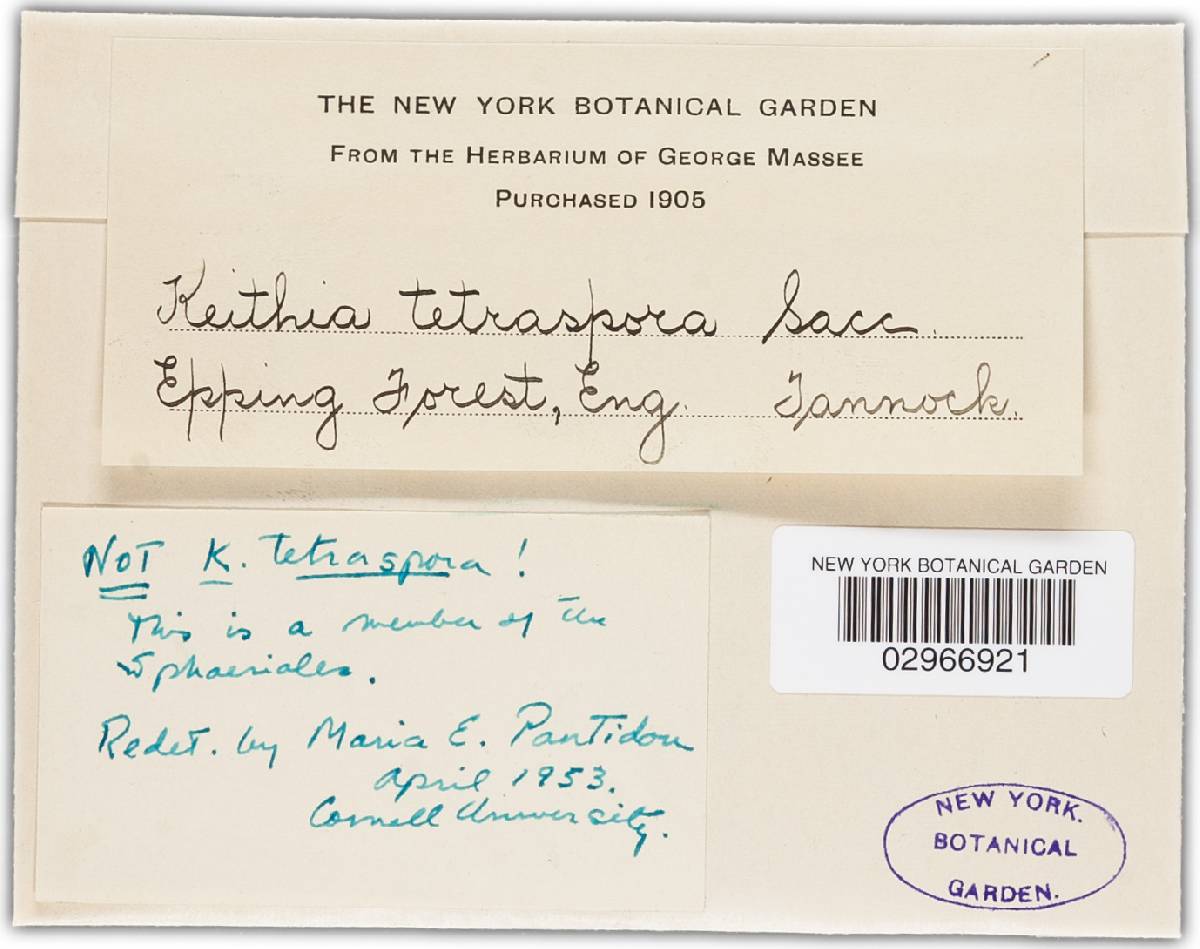 THE NEW YORK BOTANICAL GARDEN
FROM THE HERBARIUM OF GEORGE MASSEE
PURCHASED 1905
Keithia tetraspora Sacc.
Epping Forest, Eng. Tannock.
NOT K. tetraspora!
This is a member of the
Sphaeriales.
Redet. by Maria E. Pantidou
April 1953.
Cornell University.
NEW YORK BOTANICAL GARDEN
02966921
NEW YORK.
BOTANICAL
GARDEN.